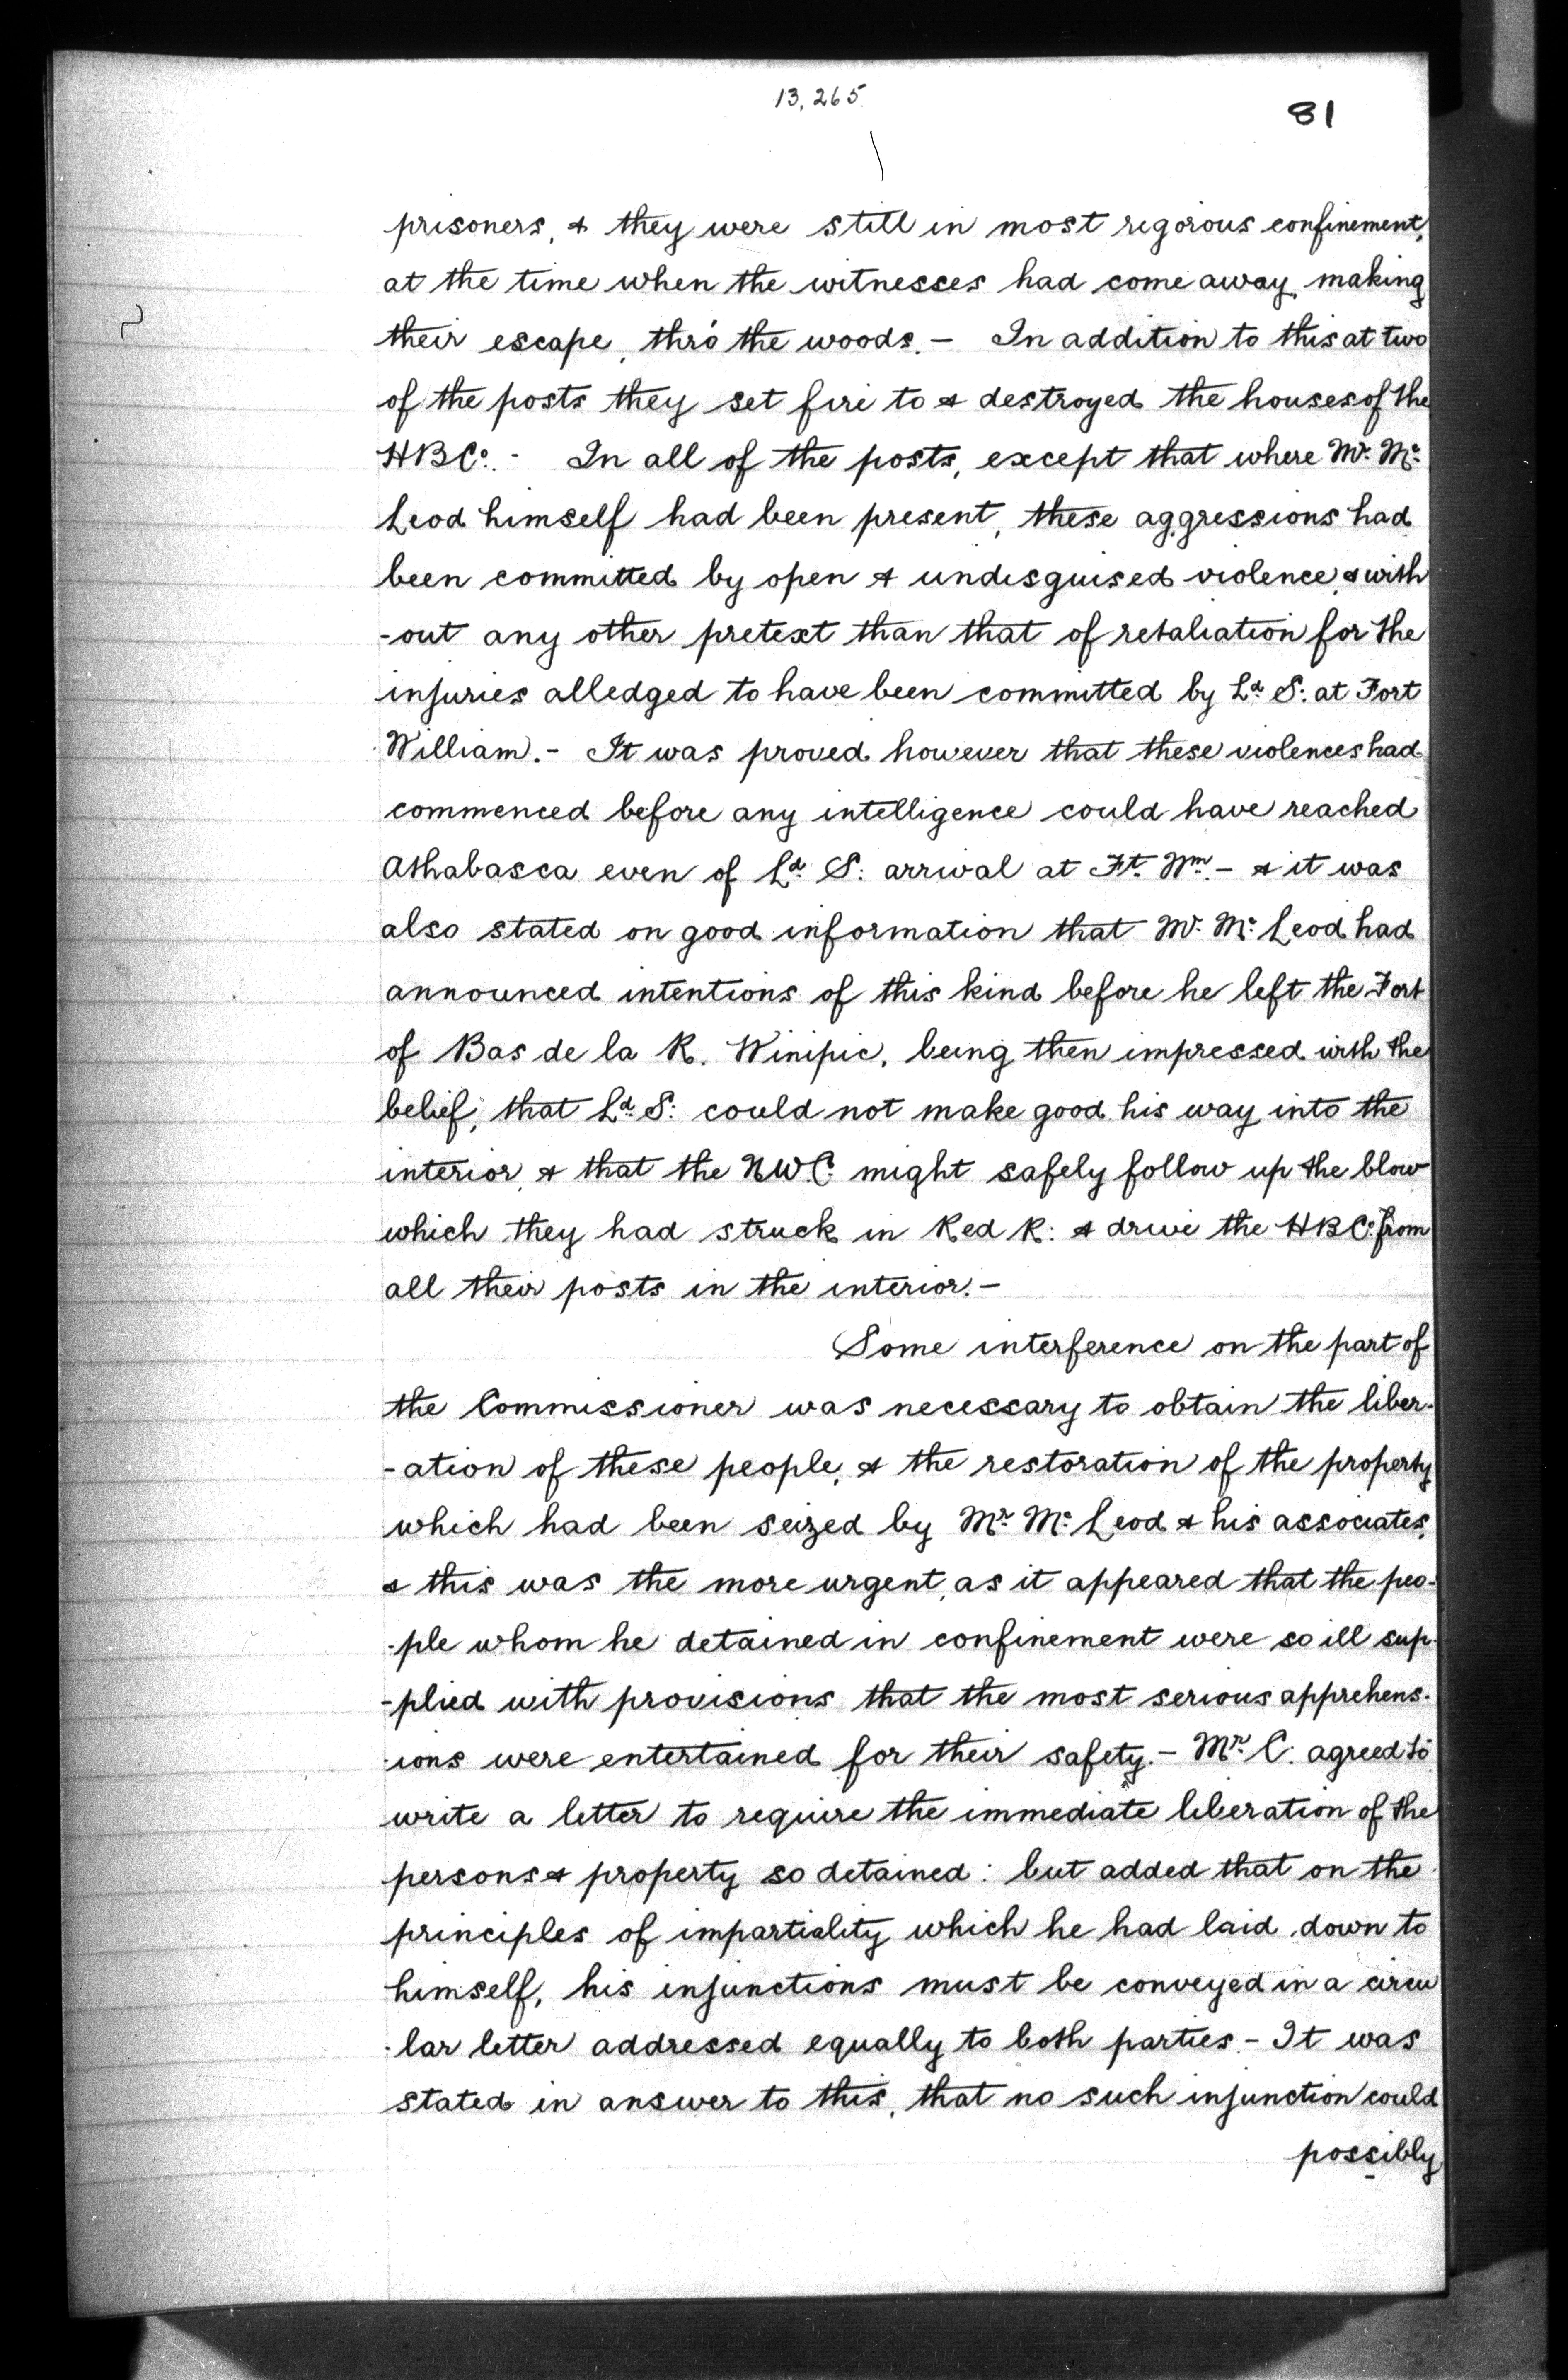 13,265
81
prisoners, & they were still in most rigorous confinement,
at the time when the witnesses had come away, making
their escape, thro' the woods. – In addition to this at two
of the posts they set fire to & destroyed the houses of the
HBCo. - In all of the posts, except that where Mr. Mc.
Leod himself had been present, these aggressions had
been committed by open & undisguised violence, & with
-out any other pretext than that of retaliation for the
injuries alledged to have been committed by Ld. S: at Fort
William. - It was proved however that these violences had
commenced before any intelligence could have reached
Athabasca even of Ld. S: arrival at Ft. Wm. – & it was
also stated on good information that Mr. Mc. Leod had
announced intentions of this kind before he left the Fort
of Bas de la R. Winipic, being then impressed with the
belief, that Ld. S: could not make good his way into the
interior, & that the NWC. might safely follow up the blow
which they had struck in Red R: & drive the HBCo. from
all their posts in the interior. –
Some interference on the part of
the Commissioner was necessary to obtain the liber-
-ation of these people, & the restoration of the property
which had been seized by Mr. Mc. Leod & his associates,
& this was the more urgent, as it appeared that the peo-
-ple whom he detained in confinement were so ill sup-
-plied with provisions that the most serious apprehens-
-ions were entertained for their safety. – Mr. C. agreed to
write a letter to require the immediate liberation of the
persons & property so detained: but added that on the
principles of impartiality which he had laid down to
himself, his injunctions must be conveyed in a circu
-lar letter addressed equally to both parties. - It was
stated in answer to this, that no such injunction could
possibly